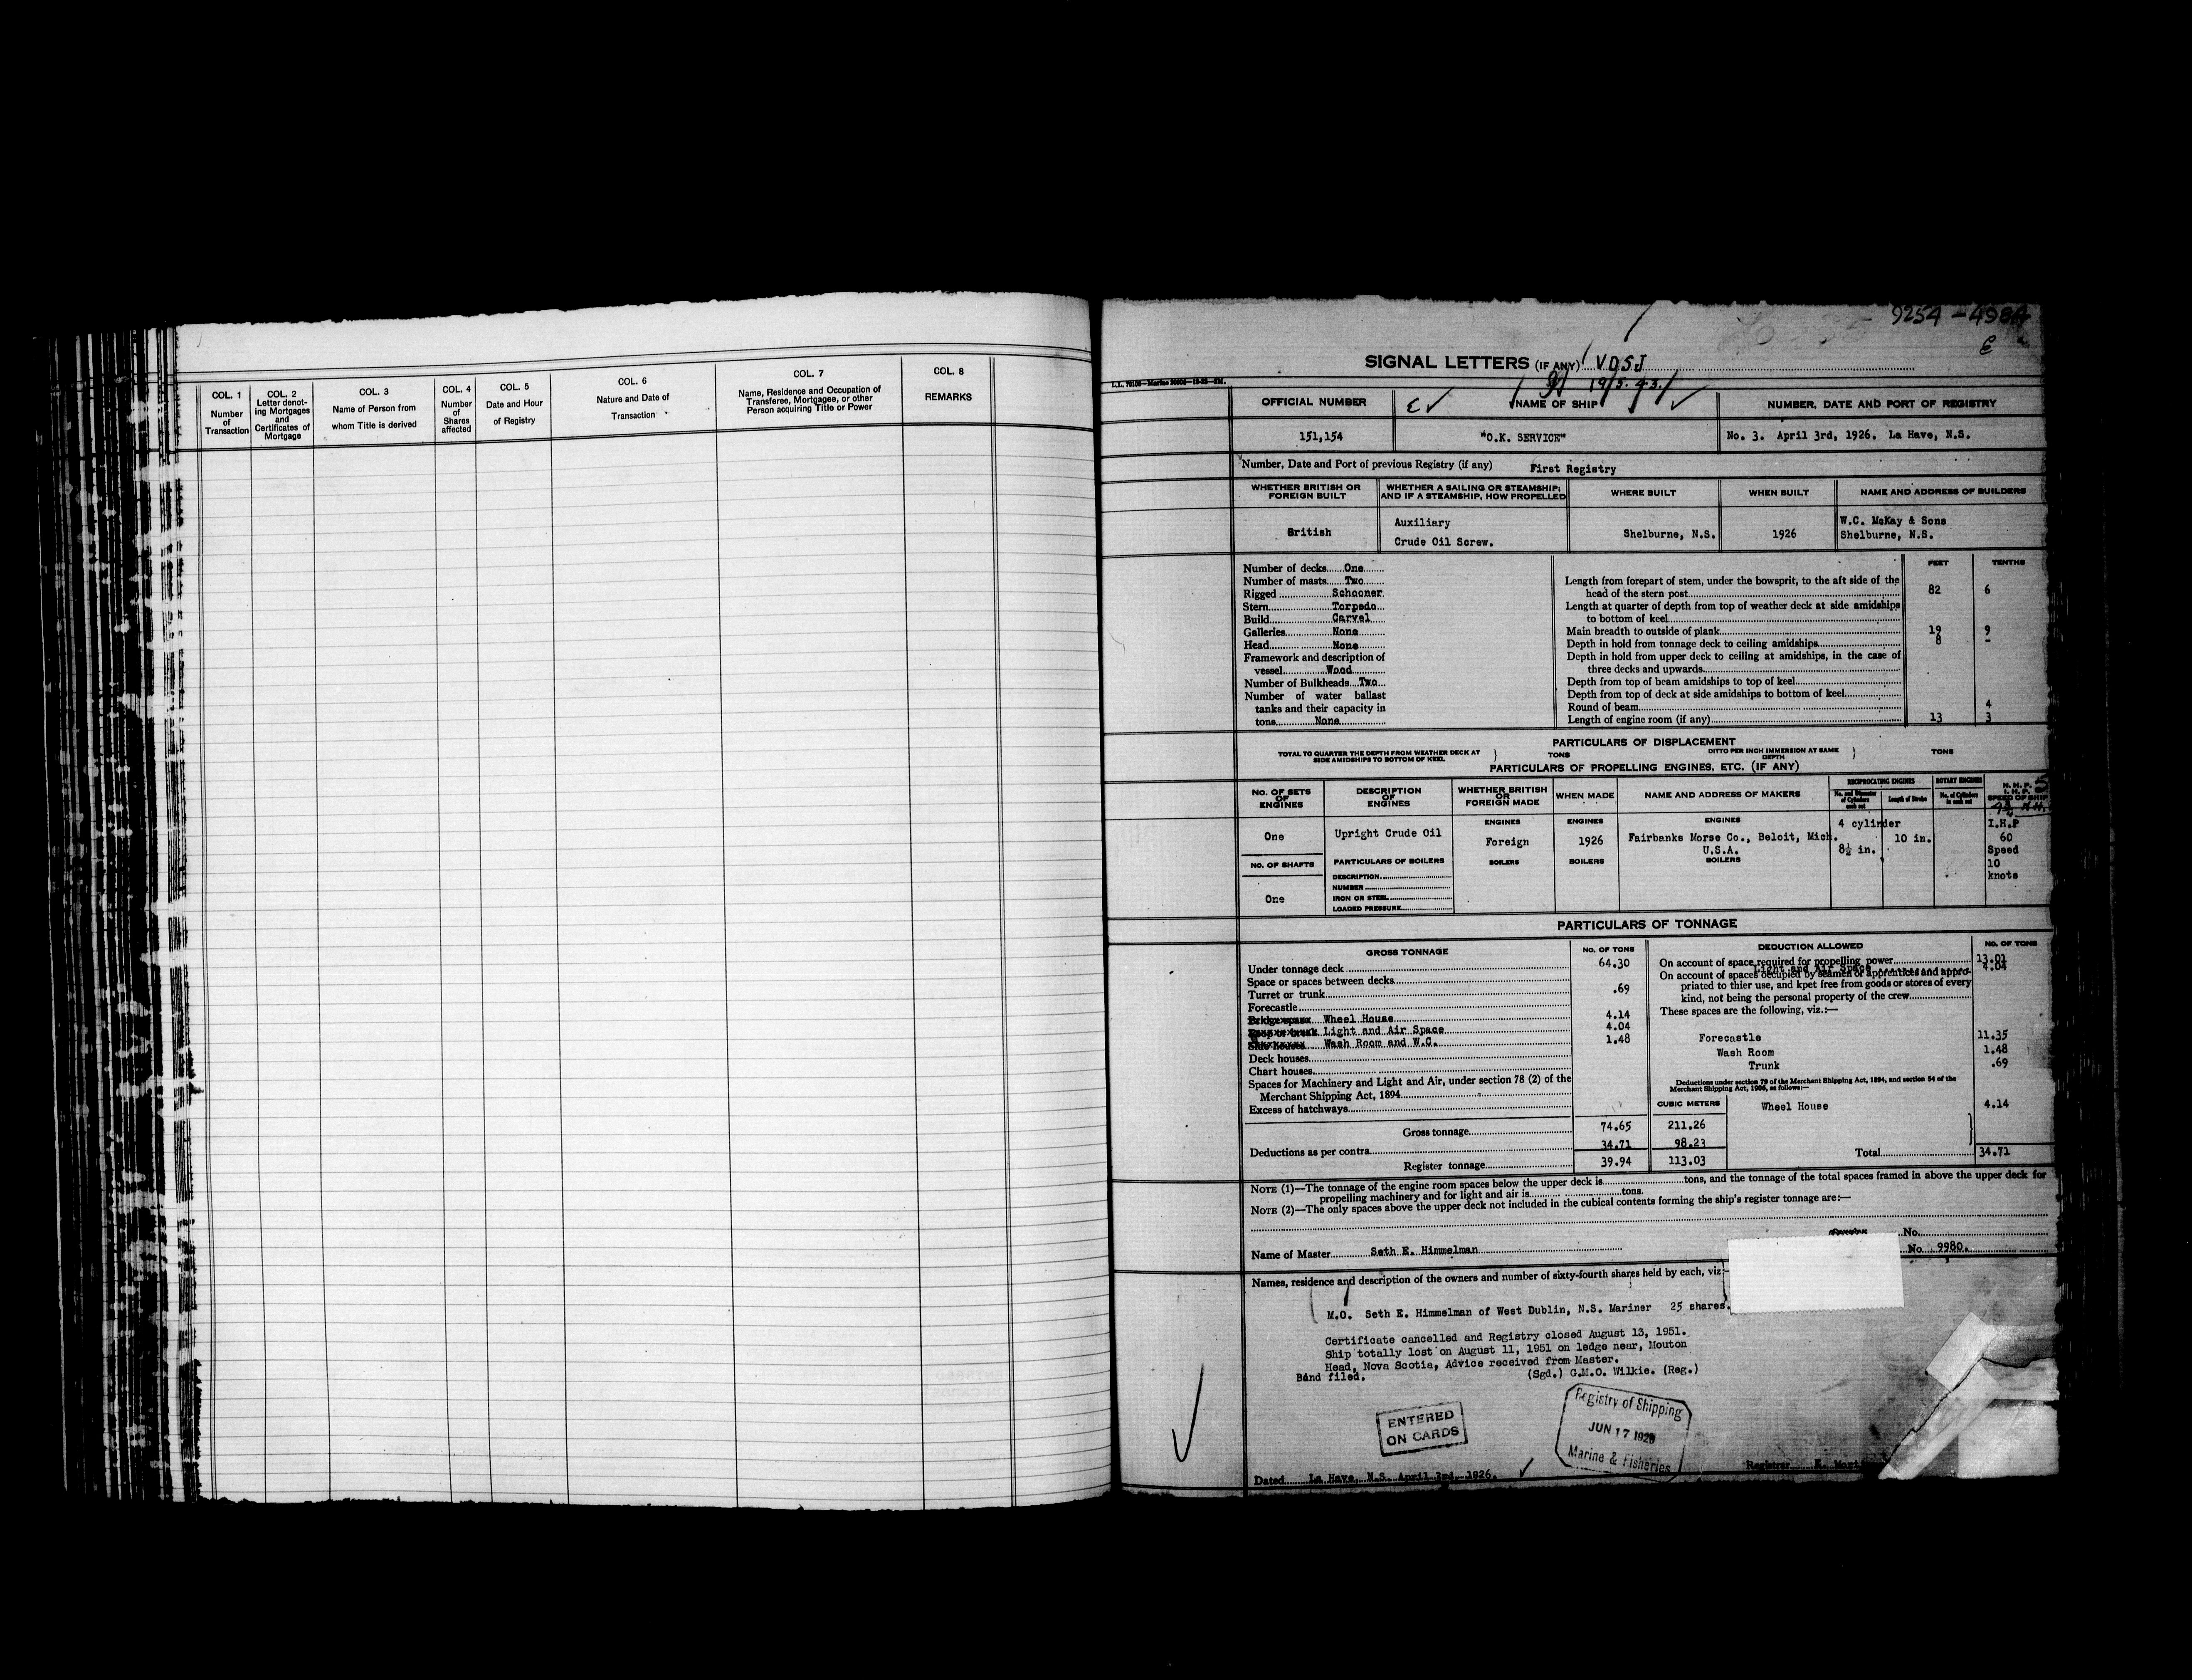 COL. 1
Number
of
Transaction
COL. 2
Letter denot-
ing Mortgages
and
Certificates of
Mortgage
COL. 3
Name of Person from
whom Title is derived
COL. 4
Number
of
Shares
affected
COL. 5
Date and Hour
of Registry
COL. 6
Nature and Date of
Transaction
COL. 7
Name, Residence and Occupation of
Transferee, Mortgagee, or other
Person acquiring Title or Power
COL. 8
REMARKS
9254 - 4984
E
SIGNAL LETTERS (IF ANY) VDSJ
19/3.43.
OFFICIAL NUMBER
NAME OF SHIP
NUMBER, DATE AND PORT OF REGISTRY
151,154
"O.K. SERVICE"
No. 3. April 3rd, 1926. La Have, N.S.
Number, Date and Port of previous Registry (if any) First Registry
WHETHER BRITISH OR
FOREIGN BUILT
WHETHER A SAILING OR STEAMSHIP;
AND IF A STEAMSHIP, HOW PROPELLED
WHERE BUILT
WHEN BUILT
NAME AND ADDRESS OF BUILDERS
British
Auxiliary
Crude Oil Screw.
Shelburne, N.S.
1926
W.C. McKay & Sons
Shelburne, N.S.
Number of decks One
Number of masts Two
Rigged Schooner
Stern Torpedo
Build Carvel
Galleries None
Head None
Framework and description of
vessel Wood
Number of Bulkheads Two
Number of water ballast
tanks and their capacity in
tons None
FEET TENTHS
Length from forepart of stem, under the bowsprit, to the aft side of the
head of the stern post 82 6
Length at quarter of depth from top of weather deck at side amidships
to bottom of keel
Main breadth to outside of plank 19 9
Depth in hold from tonnage deck to ceiling amidships 8 -
Depth in hold from upper deck to ceiling at amidships, in the case of
three decks and upwards
Depth from top of beam amidships to top of keel
Depth from top of deck at side amidships to bottom of keel
Round of beam 4
Length of engine room (if any) 13 3
PARTICULARS OF DISPLACEMENT
TOTAL TO QUARTER THE DEPTH FROM WEATHER DECK AT
SIDE AMIDSHIPS TO BOTTOM OF KEEL
TONS
DITTO PER INCH IMMERSION AT SAME
DEPTH
TONS
PARTICULARS OF PROPELLING ENGINES, ETC. (IF ANY)
NO. OF SETS
OF
ENGINES
DESCRIPTION
OF
ENGINES
WHETHER BRITISH
OR
FOREIGN MADE
WHEN MADE
NAME AND ADDRESS OF MAKERS
RECIPROCATING ENGINES
No. and Diameter
of Cylinders
each set
Length of Stroke
ROTARY ENGINES
No. of Cylinders
in each set
N. H. P.
I. H. P.
SPEED OF SHIP
One
Upright Crude Oil
ENGINES
Foreign
ENGINES
1926
ENGINES
Fairbanks Morse Co., Beloit, Mich.
U.S.A.
4 cylinder
8½ in.
10 in.
I.H.P
60
Speed
10
knots
NO. OF SHAFTS
One
PARTICULARS OF BOILERS
DESCRIPTION
NUMBER
IRON OR STEEL
LOADED PRESSURE
BOILERS
BOILERS
BOILERS
PARTICULARS OF TONNAGE
GROSS TONNAGE
NO. OF TONS
Under tonnage deck 64.30
Space or spaces between decks
Turret or trunk .69
Forecastle
Bridge space Wheel House 4.14
Poop or break Light and Air Space 4.04
Side houses Wash Room and W.C. 1.48
Deck houses
Chart houses
Spaces for Machinery and Light and Air, under section 78 (2) of the
Merchant Shipping Act, 1894
Excess of hatchways
Gross tonnage 74.65 211.26
Deductions as per contra 34.71 98.23
Register tonnage 39.94 113.03
CUBIC METERS
DEDUCTION ALLOWED
NO. OF TONS
On account of space required for propelling power 13.01
Light and Air Space 4.04
On account of spaces occupied by seamen or apprentices and appro-
priated to thier use, and kpet free from goods or stores of every
kind, not being the personal property of the crew
These spaces are the following, viz.:—
Forecastle 11.35
Wash Room 1.48
Trunk .69
Deductions under section 79 of the Merchant Shipping Act, 1894, and section 54 of the
Merchant Shipping Act, 1906, as follows:—
Wheel House 4.14
Total 34.71
NOTE (1)—The tonnage of the engine room spaces below the upper deck is tons, and the tonnage of the total spaces framed in above the upper deck for
propelling machinery and for light and air is tons.
NOTE (2)—The only spaces above the upper deck not included in the cubical contents forming the ship's register tonnage are:—
No.
Name of Master Seth E. Himmelman
No. 9980.
Names, residence and description of the owners and number of sixty-fourth shares held by each, viz:—
M.O. Seth E. Himmelman of West Dublin, N.S. Mariner 25 shares.
Certificate cancelled and Registry closed August 13, 1951.
Ship totally lost on August 11, 1951 on ledge near, Mouton
Head, Nova Scotia, Advice received from Master.
Band filed. (Sgd.) G.M.O. Wilkie. (Reg.)
ENTERED
ON CARDS
Registry of Shipping
JUN 17 1926
Marine & Fisheries
Dated La Have, N.S. April 3rd, 1926.
Registrar